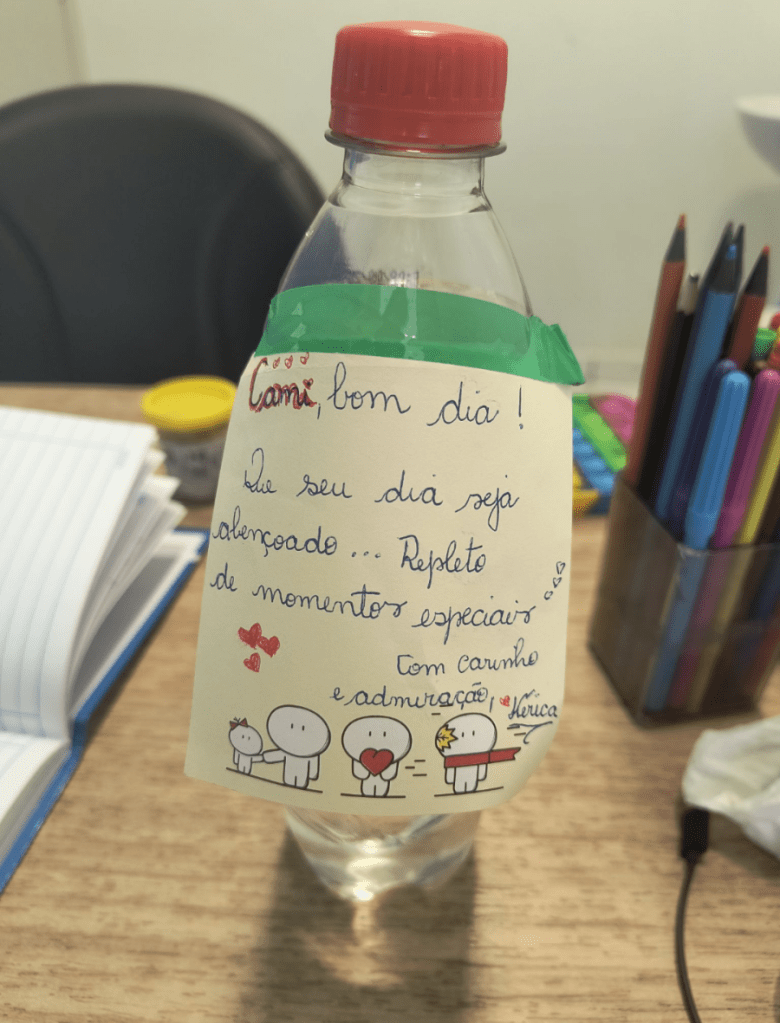 Cami, bom dia!
Que seu dia seja
abençoado... Repleto
de momentos especiais
Com carinho
e admiração,
Hérica